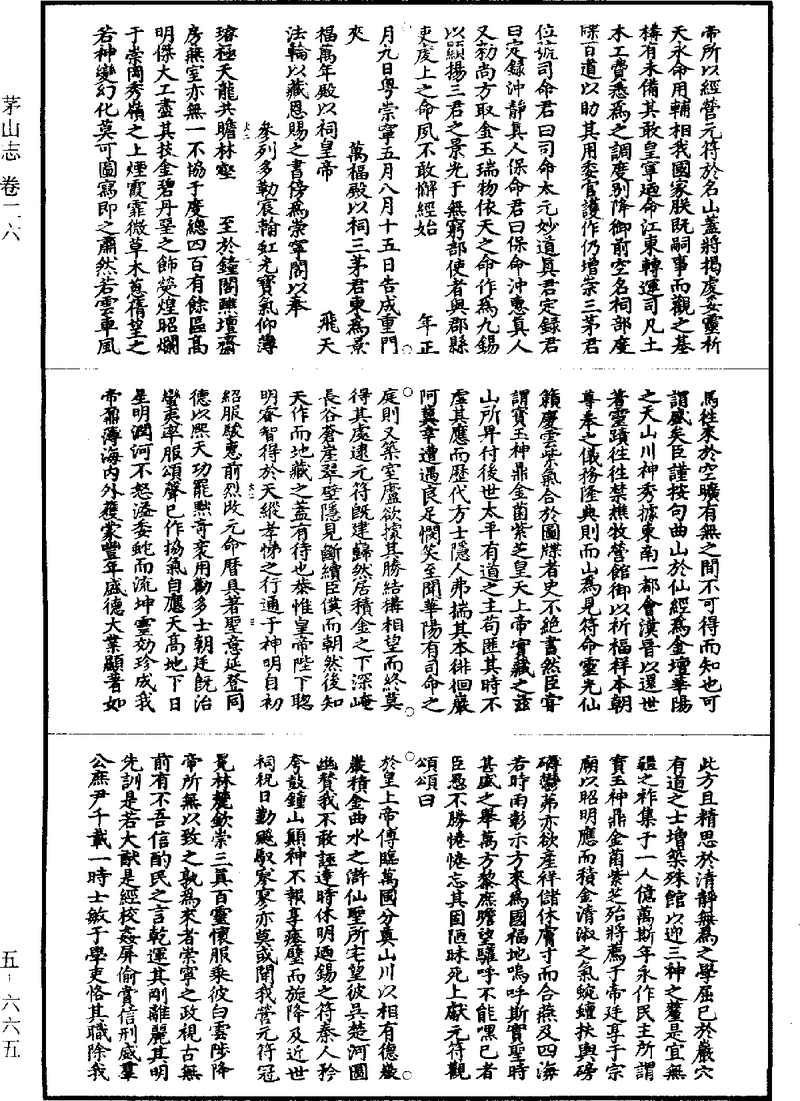 茅山志 卷二六
五–六六五
帝所以經營元符於名山蓋將揭虔妥靈祈
天永命用輔相我國家朕既嗣事而觀之基
構有未備其敢皇寧廼命江東轉運司凡土
木工費悉爲之調度別降御前空名祠部度
牒百道以助其用委官護作仍增崇三茅君
位號司命君曰司命太元妙道真君定錄君
曰定錄沖靜真人保命君曰保命沖惠真人
又勑尚方取金玉瑞物依天之命作爲九錫
以顯揚三君之景光于無窮部使者與郡縣
吏虔上之命夙不敢懈經始 年正
月九日粤崇寧五月八月十五日告成重門
夾 萬福殿以祠三茅君東爲景
福萬年殿以祠皇帝 飛天
法輪以藏恩賜之書傍爲崇寧閣以奉
參列多勒宸翰虹光寶氣仰薄
璿極天龍共瞻林壑 至於鐘閣醮壇齋
房無室亦無一不協于度總四百有餘區高
明傑大工盡其技金碧丹堊之飾熒煌昭爛
于崇岡秀嶺之上煙霞霏微草木蔥蒨望之
若神變幻化莫可圖寫即之肅然若雲車風
馬往來於空曠有無之間不可得而知也可
謂盛矣臣謹按句曲山於仙經爲金壇華陽
之天山川神秀據東南一都會漢晉以還世
著靈蹟往往禁樵牧營館御以祈福祥本朝
尊奉之儀務隆典則而山爲見符命靈光仙
籟慶雲紫氣合於圖牒者史不絕書然臣嘗
謂寶玉神鼎金菌紫芝皇天上帝寶藏之茲
山所畀付後世太平有道之主苟匪其時不
虛其應而歷代方士隱人弗揣其本徘徊巖
阿冀幸遭遇良足憫笑至聞華陽有司命之
庭則又築室廬欲據其勝結構相望而終莫
得其處逮元符既建巋然居積金之下深崦
長谷蒼崖翠壁隱見斷續臣僕而朝然後知
天作而地藏之蓋有待也恭惟皇帝陛下聰
明睿智得於天縱孝悌之行通于神明自初
紹服駿惠前烈改元命曆具著聖意延登同
德以熙天功罷黜奇衺用勸多士朝廷既治
蠻夷率服頌聲已作協氣自應天高地下日
星明潤河不怒溢委蛇而流坤靈効珍成我
帝鼐薄海内外獲蒙豐年盛德大業顯著如
此方且精思於清靜無爲之學屈已於巖穴
有道之士增築殊館以迎三神之釐是宜無
疆之祚集于一人億萬斯年永作民主所謂
寶玉神鼎金菌紫芝殆將薦于帝廷享于宗
廟以昭明應而積金清淑之氣蜿蟺扶輿磅
礡鬱茀亦欲產祥儲休膚寸而合燕及四海
若時雨彰示方來爲國福地嗚呼斯實聖時
甚盛之舉萬方黎庶瞻望驩呼不能嘿已者
臣愚不勝惓惓忘其固陋昧死上獻元符觀
頌頌曰
於皇上帝傅臨萬國分奠山川以相有德巖
巖積金曲水之滸仙聖所宅望彼吳楚河圖
幽贊我不敢誣達時休明廼錫之符秦人矜
夸鼓鐘山顛神不報享瘞璧而旋降及近世
祠祝日勤颷馭寥寥亦莫或聞我營元符冠
冕林麓欽崇三真百靈懷服乘彼白雲陟降
帝所無以致之孰爲來者崇寧之政視古無
前有不吾信酌民之言乾運其剛離麗其明
先訓是若大猷是經校姦屏偷賞信刑威羣
公庶尹千載一時士敏于學吏恪其職除我